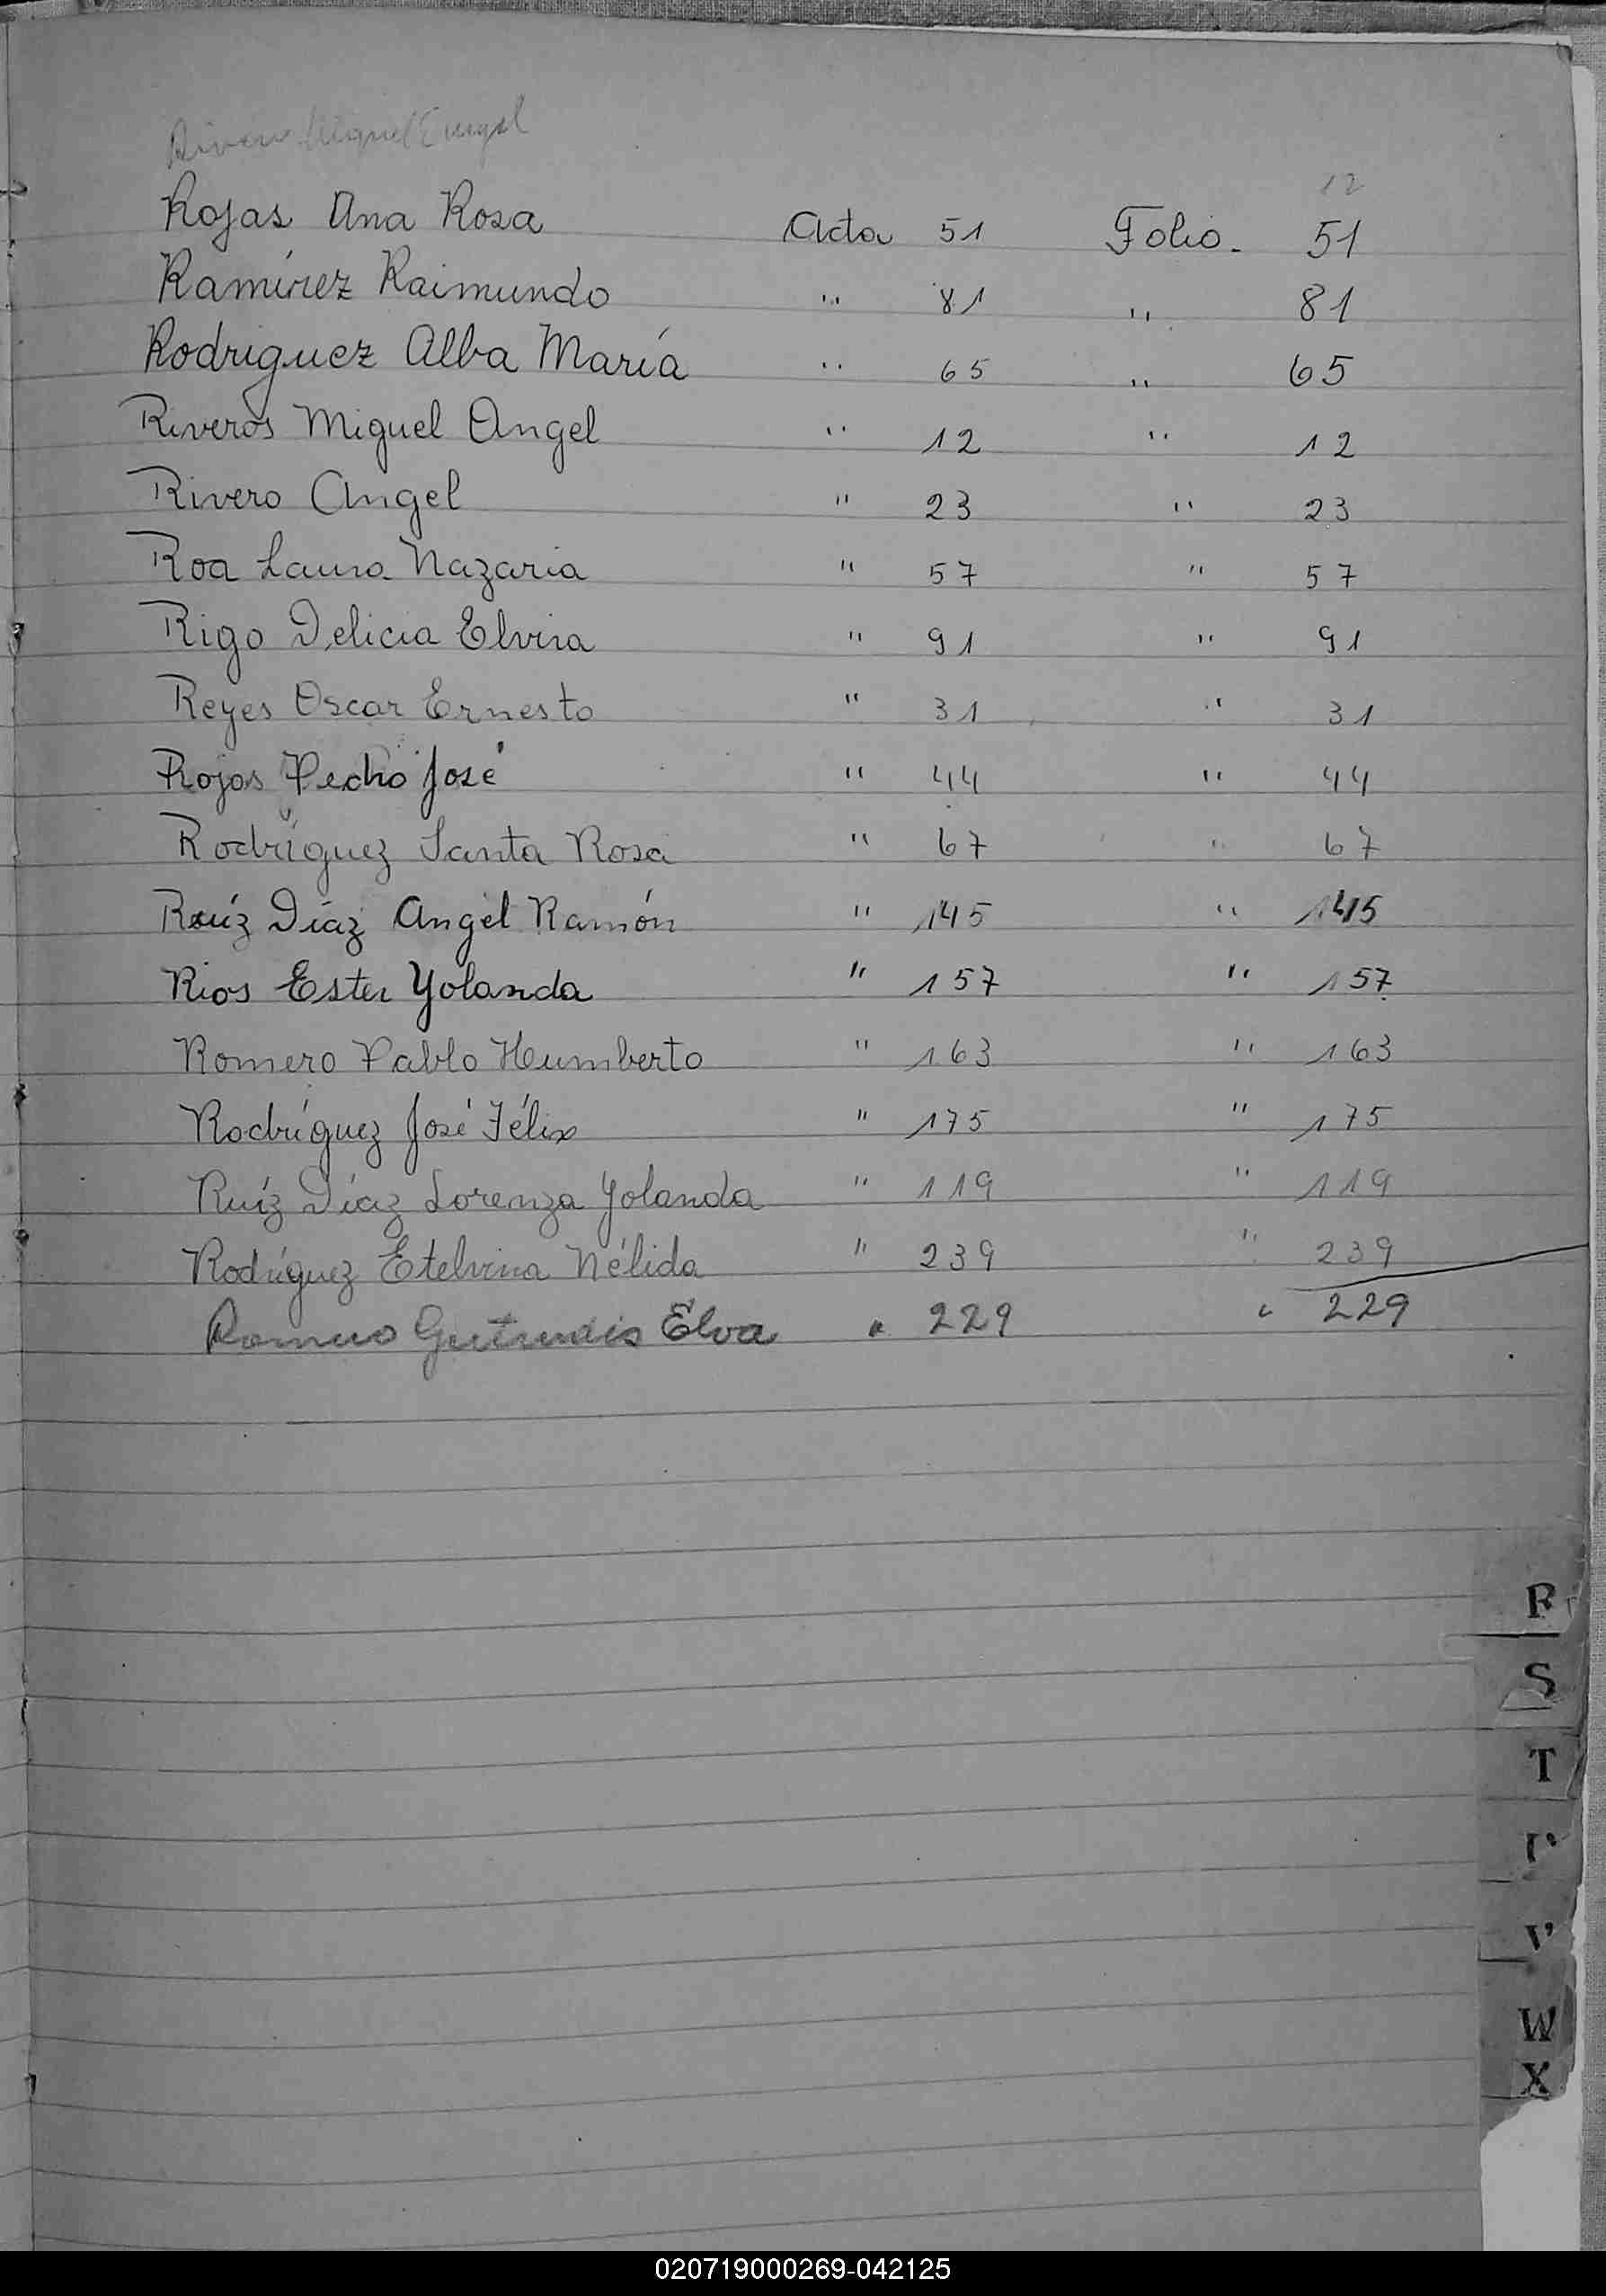 Rivero Miguel Angel
12
Rojas Ana Rosa Acta 51 Folio. 51
Ramírez Raimundo " 81 " 81
Rodriguez Alba María " 65 " 65
Riveros Miguel Angel " 12 " 12
Rivero Angel " 23 " 23
Roa Laura Nazaria " 57 " 57
Rigo Delicia Elvira " 91 " 91
Reyes Oscar Ernesto " 31 " 31
Rojas Pedro José " 44 " 44
Rodríguez Santa Rosa " 67 " 67
Ruíz Díaz Angel Ramón " 145 " 145
Rios Ester Yolanda " 157 " 157
Romero Pablo Humberto " 163 " 163
Rodríguez José Félix " 175 " 175
Ruíz Díaz Lorenza Yolanda " 119 " 119
Rodríguez Etelvina Nélida " 239 " 239
Romero Gertrudis Elva " 229 " 229
R
S
T
V
W
X
020719000269-042125